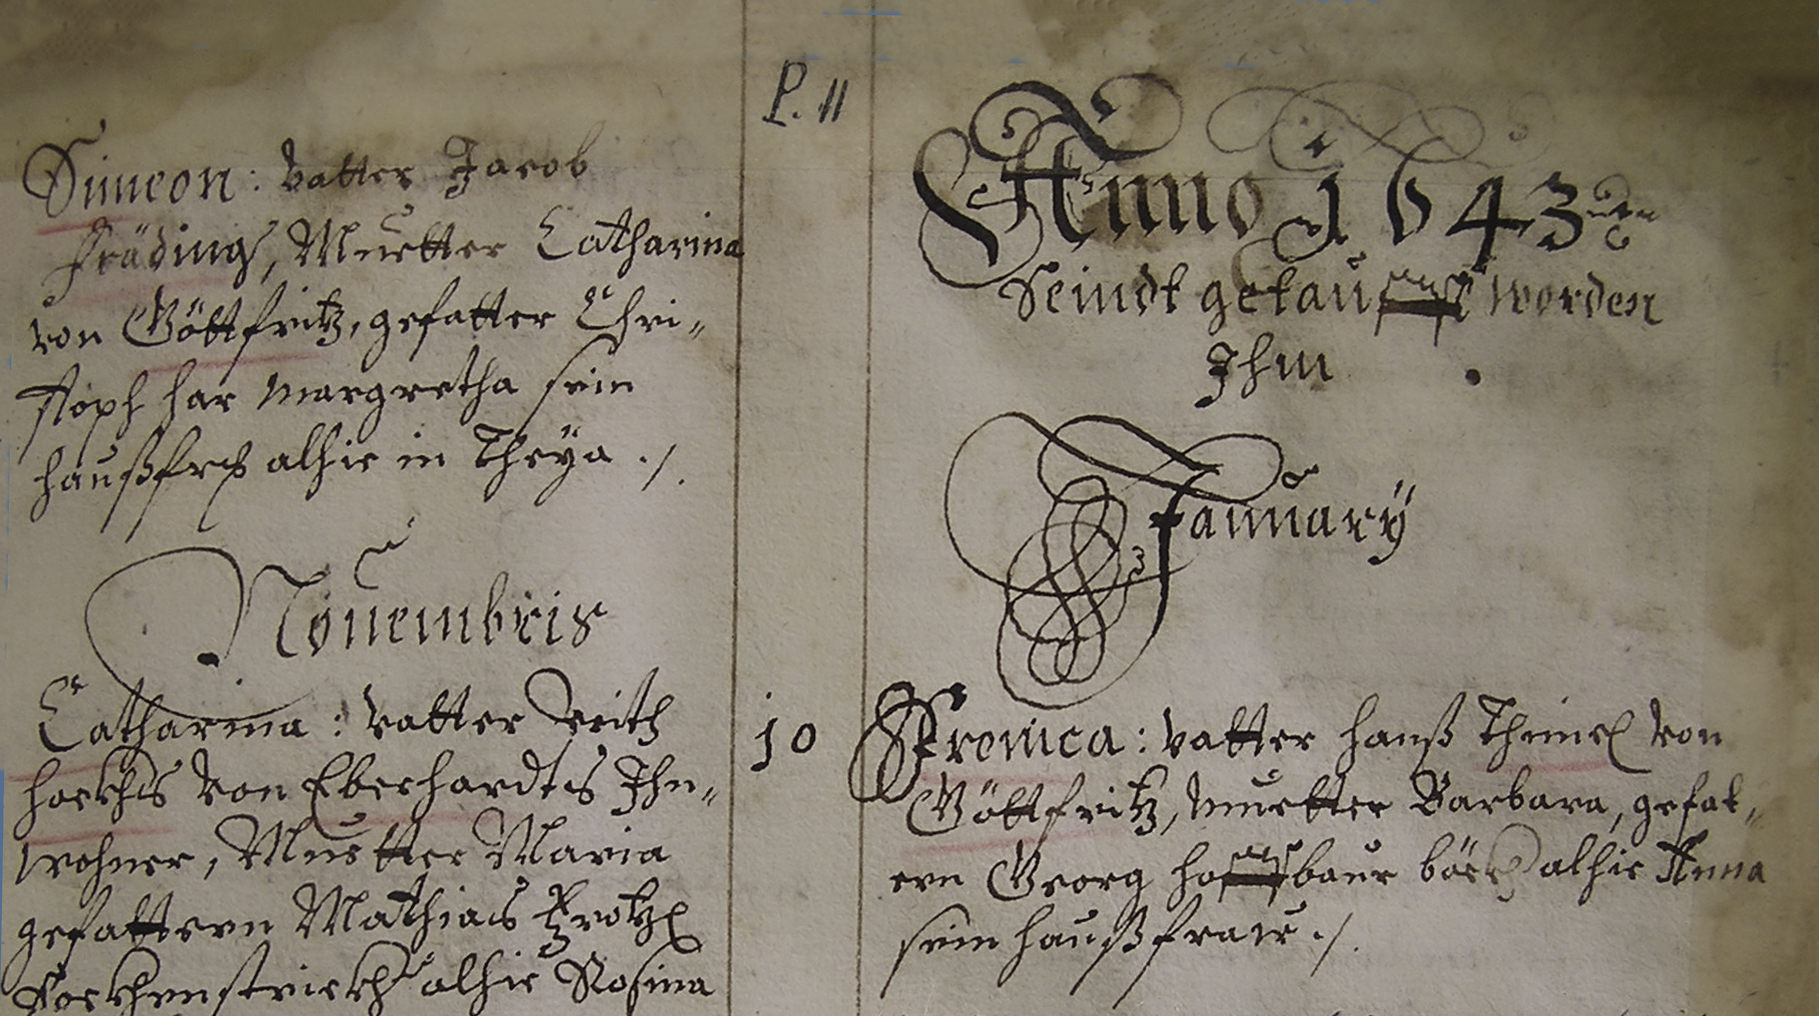 P. 11
Simeon: Vatter Jacob
Präding, Muetter Catharina
von Göttfritz, gefatter Chri-
stoph har Margretha sein
haußfr alhie in Theÿa ./.
Nouembris
Catharina: Vatter Veith
hackhls von Eberhardts Ihn-
wohner, Muetter Maria
gefattern Mathias
alhie Rosina
Anno 1643
Seindt getaufft worden
Ihm
January
10
Fronica: Vatter Hanß von
Göttfritz, Muetter Barbara, gefat-
ern Georg hoffbaur böckh alhie Anna
sein haußfraw ./.